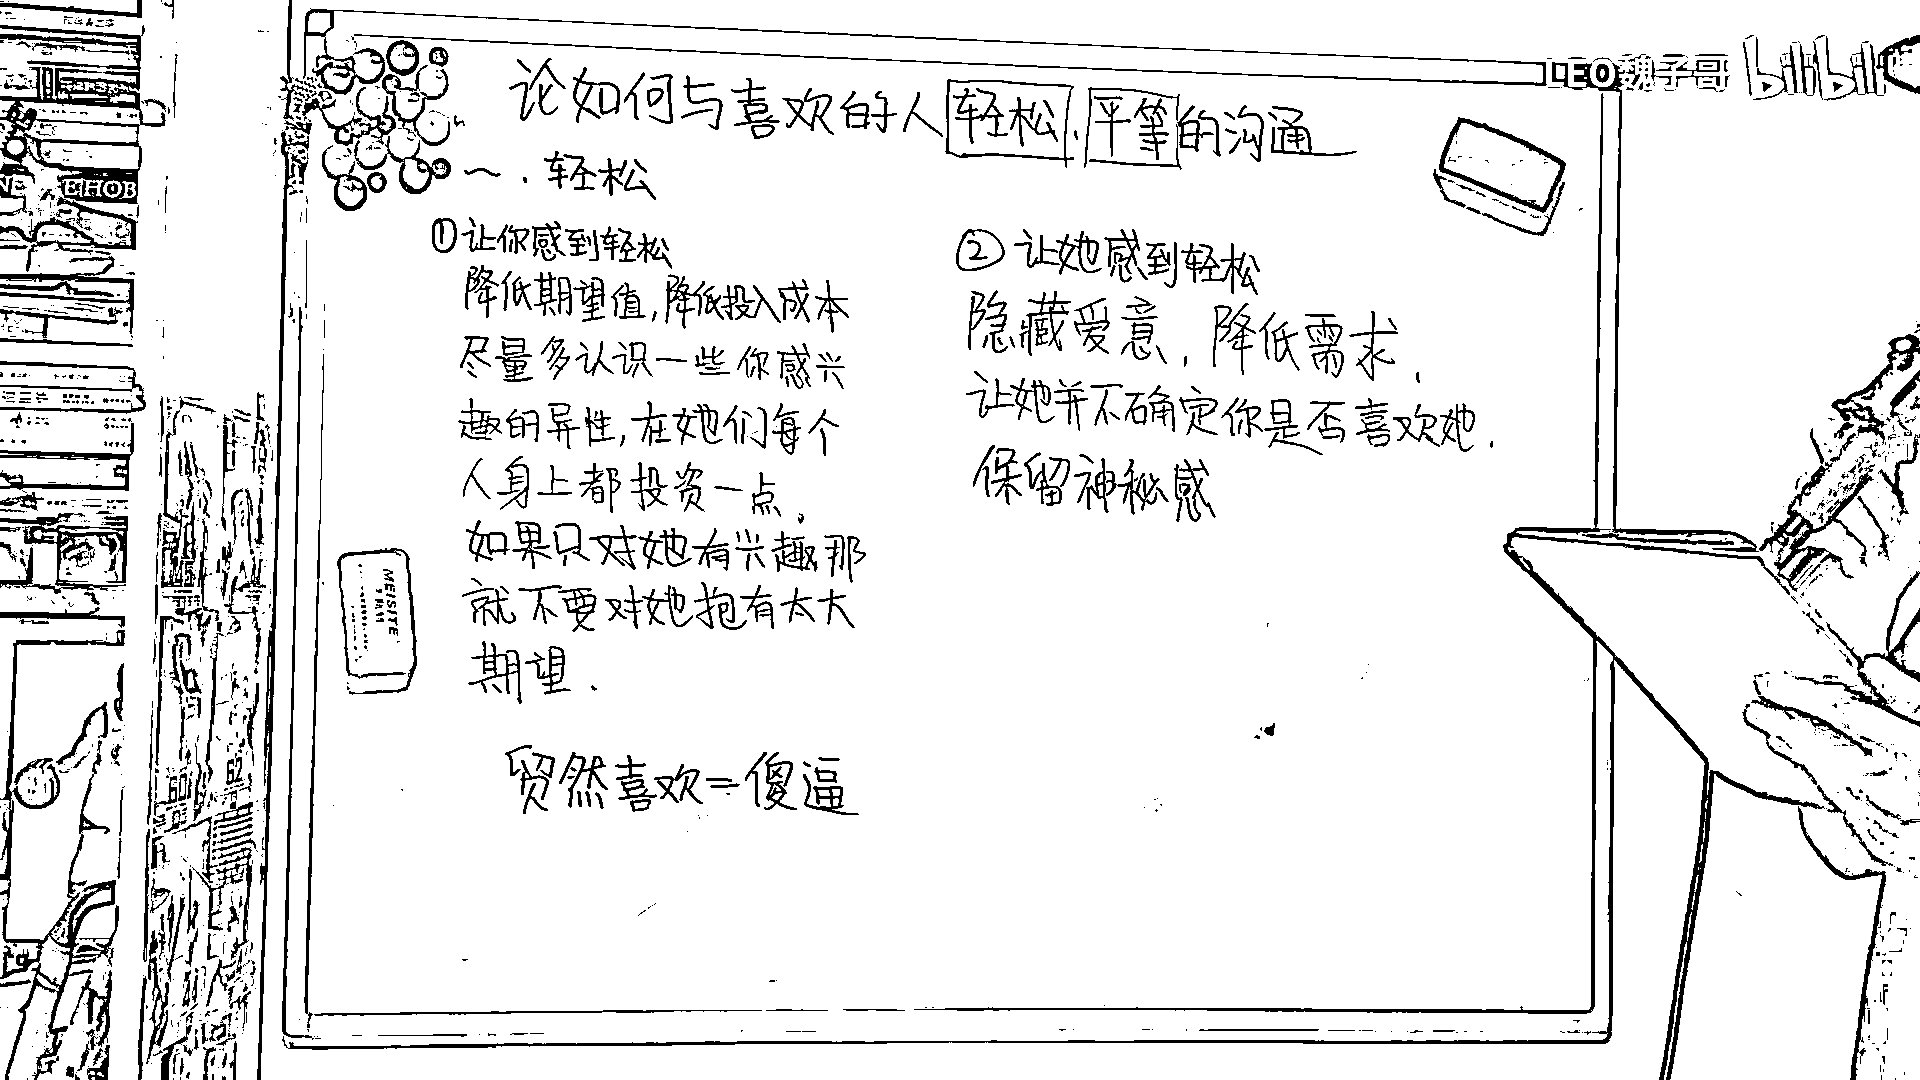 LEO魏子哥 bilibili
论如何与喜欢的人轻松.平等的沟通
一.轻松
①让你感到轻松
降低期望值,降低投入成本
尽量多认识一些你感兴
趣的异性,在她们每个
人身上都投资一点.
如果只对她有兴趣那
就不要对她抱有太大
期望.
贸然喜欢=傻逼
②让她感到轻松
隐藏爱意,降低需求.
让她并不确定你是否喜欢她.
保留神秘感
MEISITE
EHOB